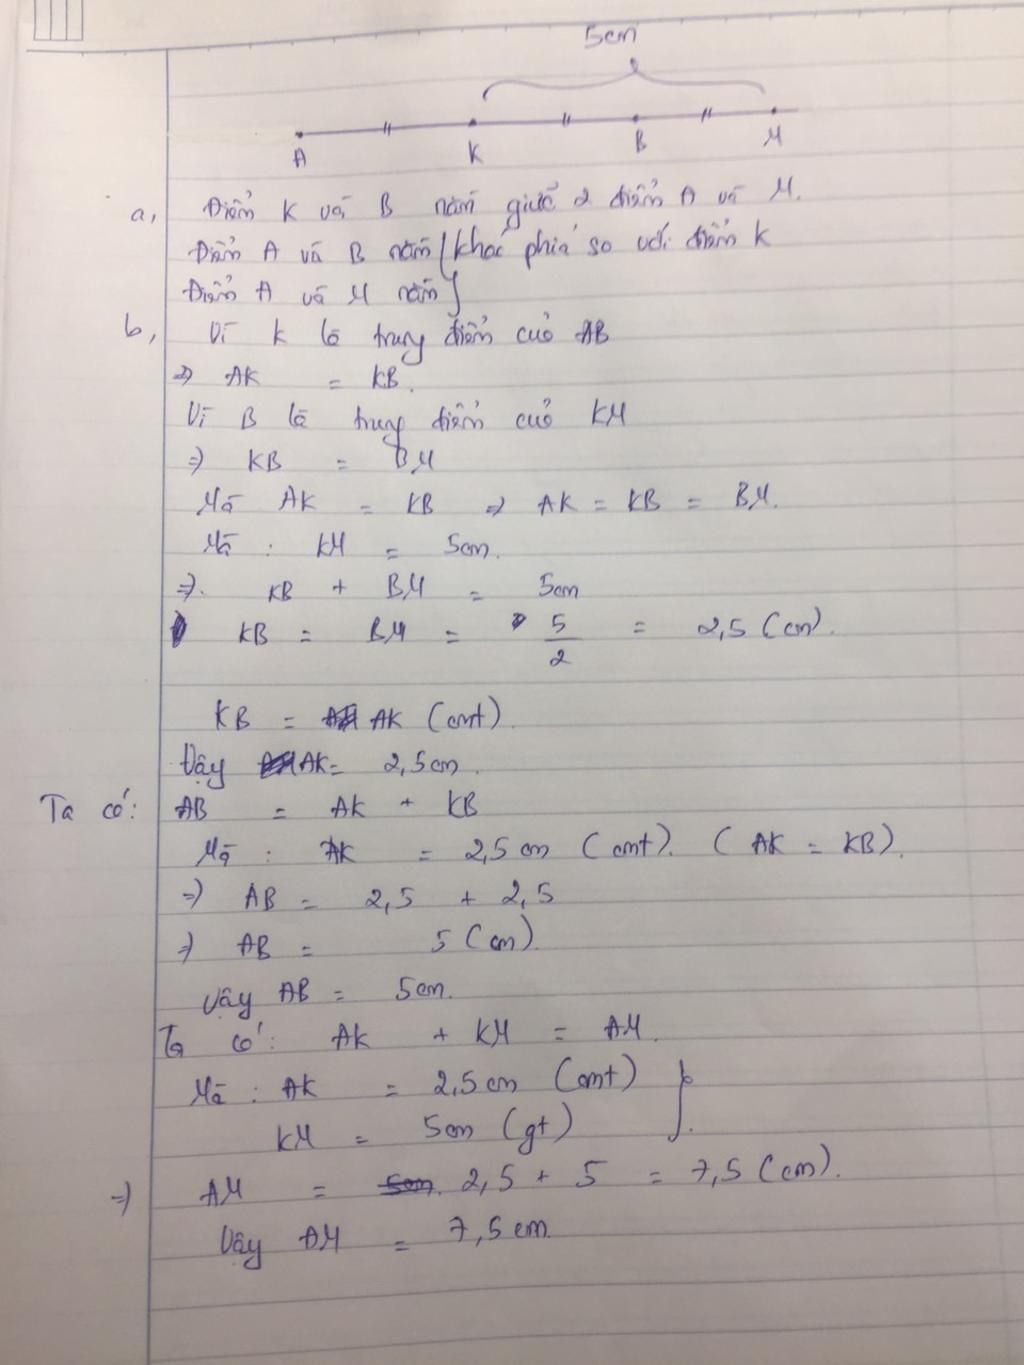 5cm
A K B M
a, Điểm K và B nằm giữa 2 điểm A và M.
Điểm A và B nằm khác phía so với điểm K
Điểm A và M nằm
b, Vì K là trung điểm của AB
=> AK = KB.
Vì B là trung điểm của KM
=> KB = BM
Mà AK = KB => AK = KB = BM.
Mà : KM = 5cm.
=>. KB + BM = 5cm
KB = BM = 5/2 = 2,5 (cm).
KB = AK (cmt).
Vậy AK = 2,5cm.
Ta có: AB = AK + KB
Mà : AK = 2,5cm (cmt). (AK = KB).
=> AB = 2,5 + 2,5
=> AB = 5 (cm).
Vậy AB = 5cm.
Ta có: AK + KM = AM.
Mà : AK = 2,5cm (cmt)
KM = 5cm (gt)
=> AM = 2,5 + 5 = 7,5 (cm).
Vậy AM = 7,5cm.